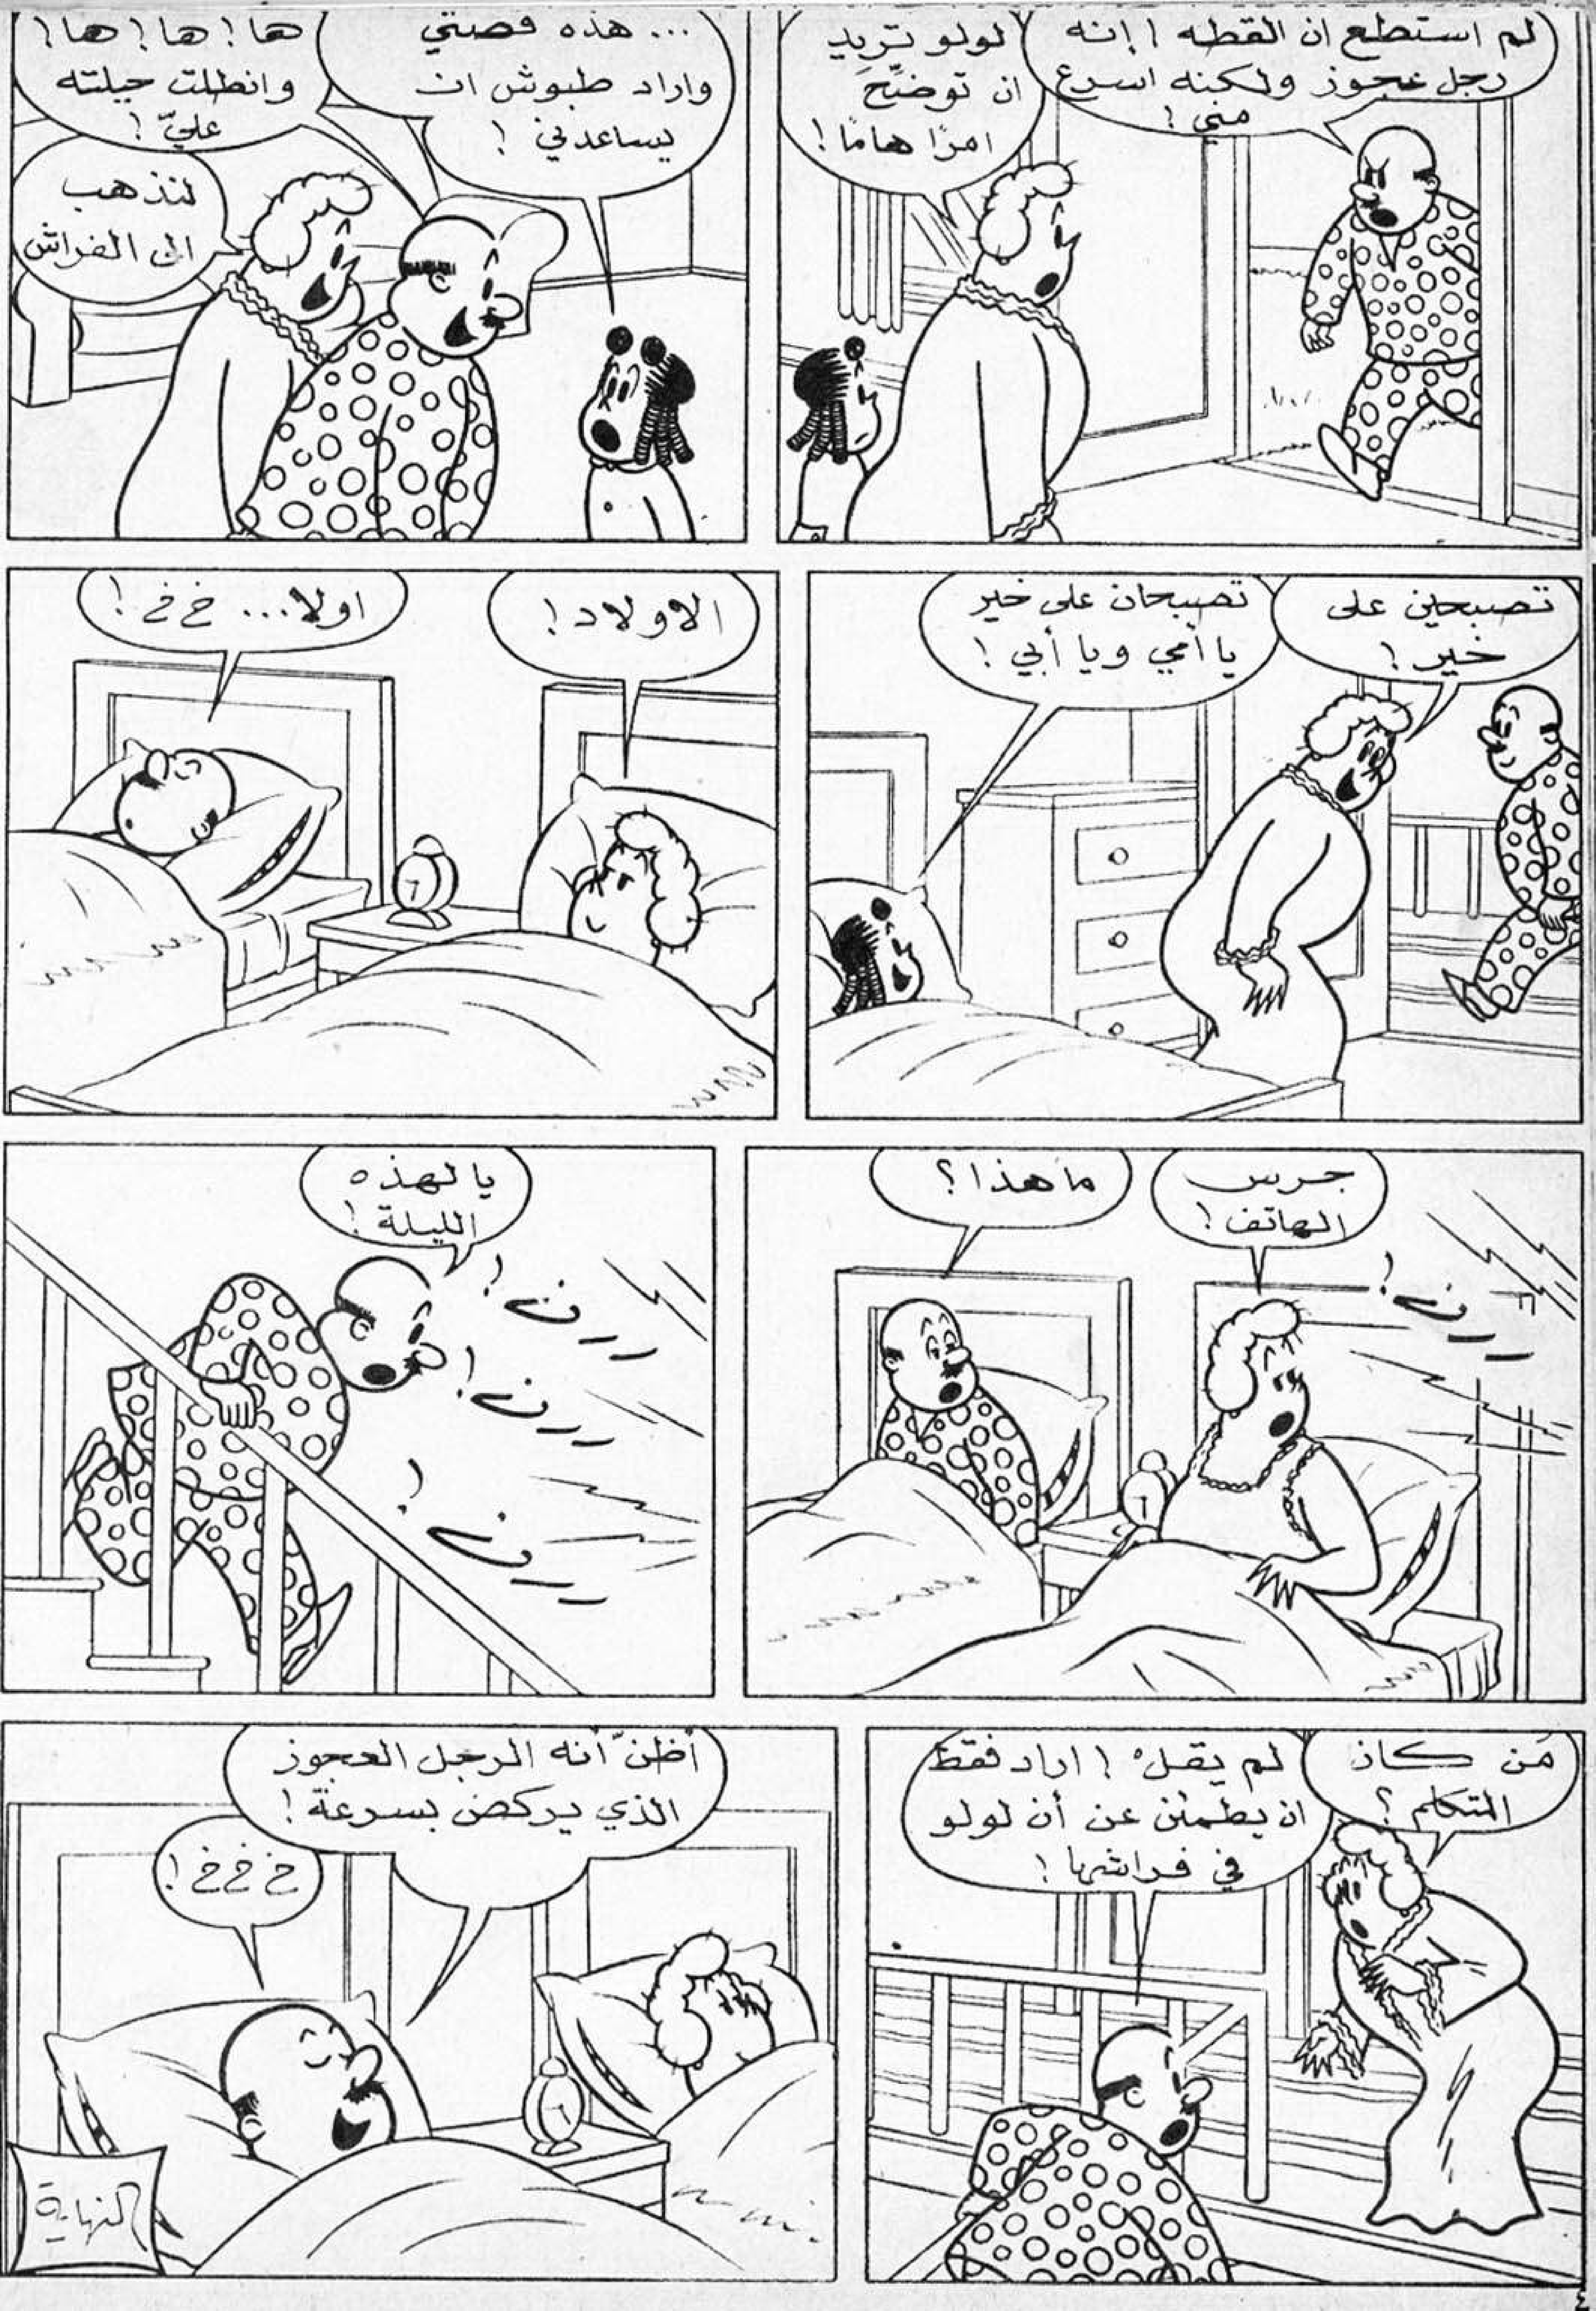 لم استطع ان القطه ! إنه
رجل عجوز ولكنه اسرع
مني !
لولو تريد
ان توضّحَ
امرًا هامًا !
... هذه قصتي
واراد طبوش ان
يساعدني !
ها ! ها ! ها !
وانطلت حيلته
عليّ !
لنذهب
الى الفراش
تصبحين على
خير !
تصبحان على خير
يا أمي ويا أبي !
الاولاد !
اولا... خ خ !
جرس
الهاتف !
ما هذا ؟
ررن !
يا لهذه
الليلة !
ررن !
ررن !
ررن !
مَن كان
المتكلم ؟
لم يقلْ ! اراد فقط
ان يطمئن عن أن لولو
في فراشها !
أظنّ أنه الرجل العجوز
الذي يركض بسرعة !
خ خ خ !
النهاية
٤